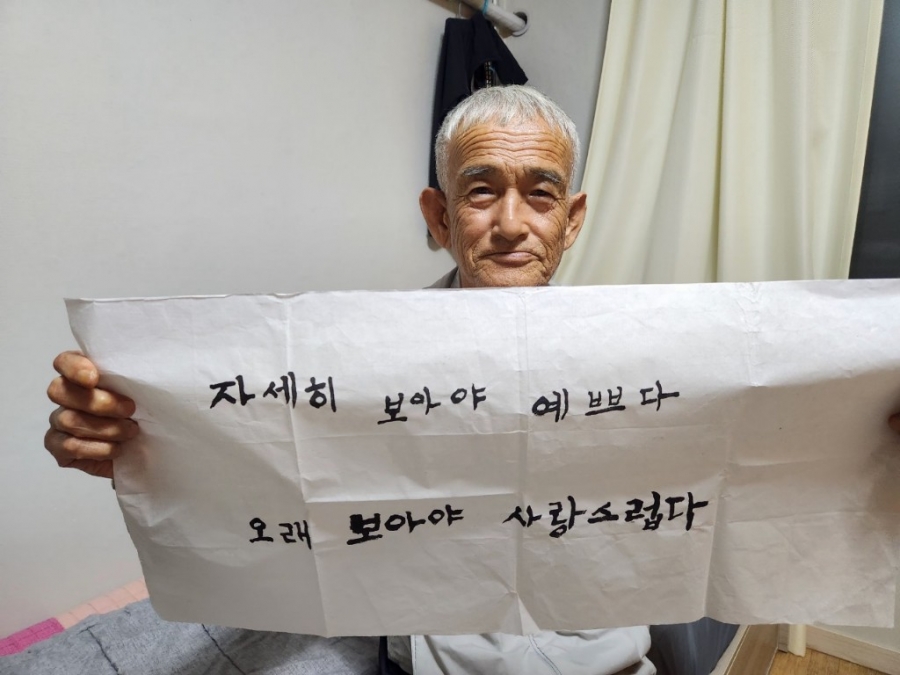 자세히 보아야 예쁘다
오래 보아야 사랑스럽다